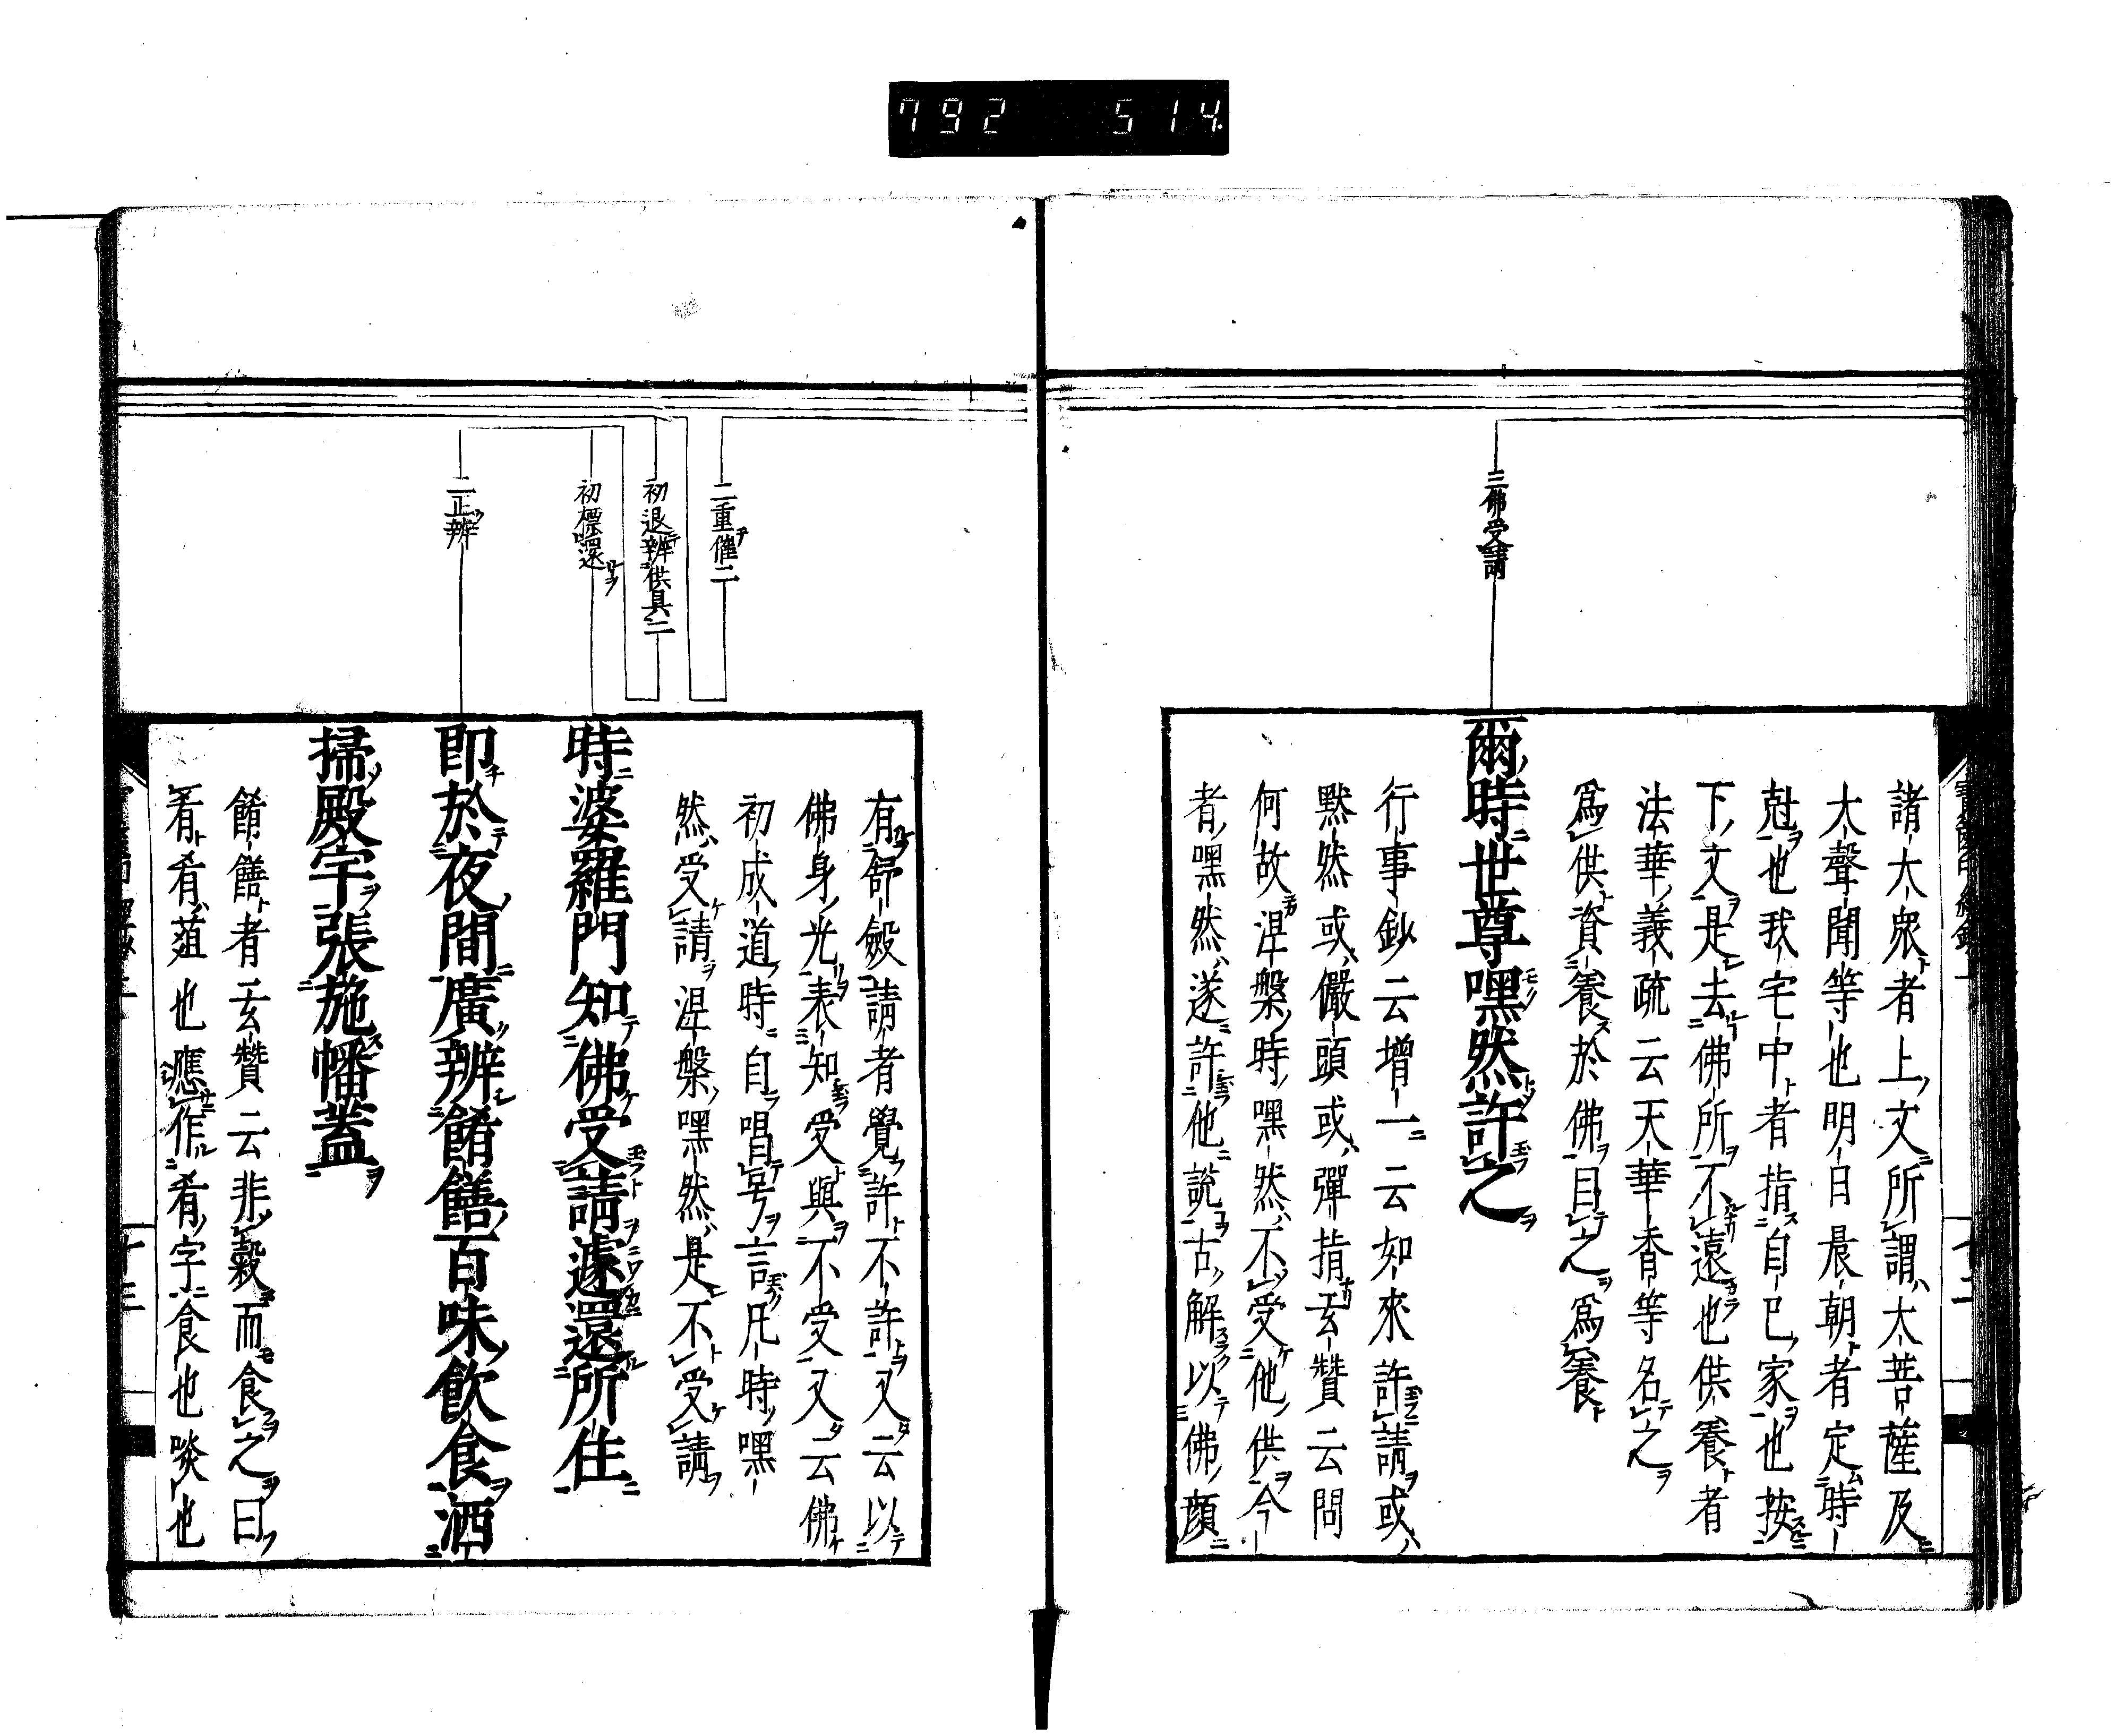 792 514
三佛受請
諸大衆者上文所謂大菩薩及
大聲聞等也明日晨朝者定時
尅也我宅中者指自己家也按
下文是去佛所不遠也供養者
法華義疏云天華香等名之
爲供資養於佛目之爲養
爾時世尊嘿然許之
行事鈔云增一云如來許請或
默然或儼頭或彈指玄贊云問
何故涅槃時嘿然不受他供今
者嘿然遂許他說古解以佛顔
十二
二重催二
初退辨供具二
初標還
二正辨
有舒斂請者覺許不許又云以
佛身光表知受與不受又云佛
初成道時自唱号言凡時嘿
然受請涅槃嘿然是不受請
時婆羅門知佛受請遽還所住
即於夜間廣辨餚饍百味飲食洒
掃殿宇張施幡蓋
餚饍者玄贊云非穀而食之曰
肴肴葅也應作肴字食也啖也
十三